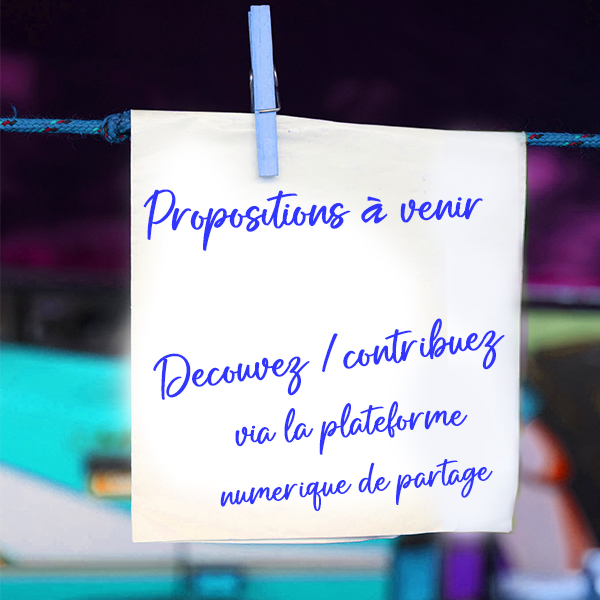 Propositions à venir
Decouvez / contribuez
via la plateforme
numerique de partage